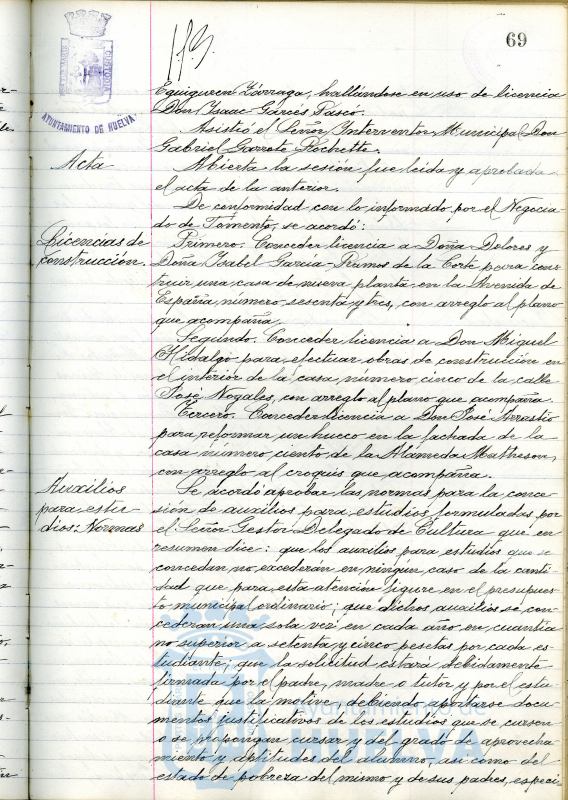 69
113.
AYUNTAMIENTO DE HUELVA
CUSTODIA
Eguiguren Zárraga, hallándose en uso de licencia
Don Isaac Garcés Pascó.
Asistió el Señor Interventor Municipal Don
Gabriel Garrote Rochette.
Acta
Abierta la sesión fue leída y aprobada
el acta de la anterior.
De conformidad con lo informado por el Negocia
do de Fomento, se acordó:
Licencias de
construcción.
Primero. Conceder licencia a Doña Dolores y
Doña Isabel García-Ramos de la Corte para cons
truir una casa de nueva planta en la Avenida de
España, número sesenta y tres, con arreglo al plano
que acompaña.
Segundo. Conceder licencia a Don Miguel
Hidalgo para efectuar obras de construcción en
el interior de la casa número cinco de la calle
José Nogales, con arreglo al plano que acompaña.
Tercero. Conceder licencia a Don José
para reformar un hueco en la fachada de la
casa número ciento de la Alameda Matheson,
con arreglo al croquis que acompaña.
Auxilios
para estu-
dios: Normas
Se acordó aprobar las normas para la conce
sión de auxilios para estudios formuladas por
el Señor Gestor Delegado de Cultura que en
resumen dice: que los auxilios para estudios que se
concedan no excederán en ningún caso de la canti
dad que para esta atención figure en el presupues
to municipal ordinario; que dichos auxilios se con
cederán una sola vez en cada año en cuantía
no superior a setenta y cinco pesetas por cada es-
tudiante; que la solicitud estará debidamente
firmada por el padre, madre o tutor y por el estu
diante que la motive, debiendo aportarse docu
mentos justificativos de los estudios que se cursen
o se propongan cursar y del grado de aprovecha
miento y aptitudes del alumno, así como del
estado de pobreza del mismo y de sus padres, especi-
Ayuntamiento de
HUELVA